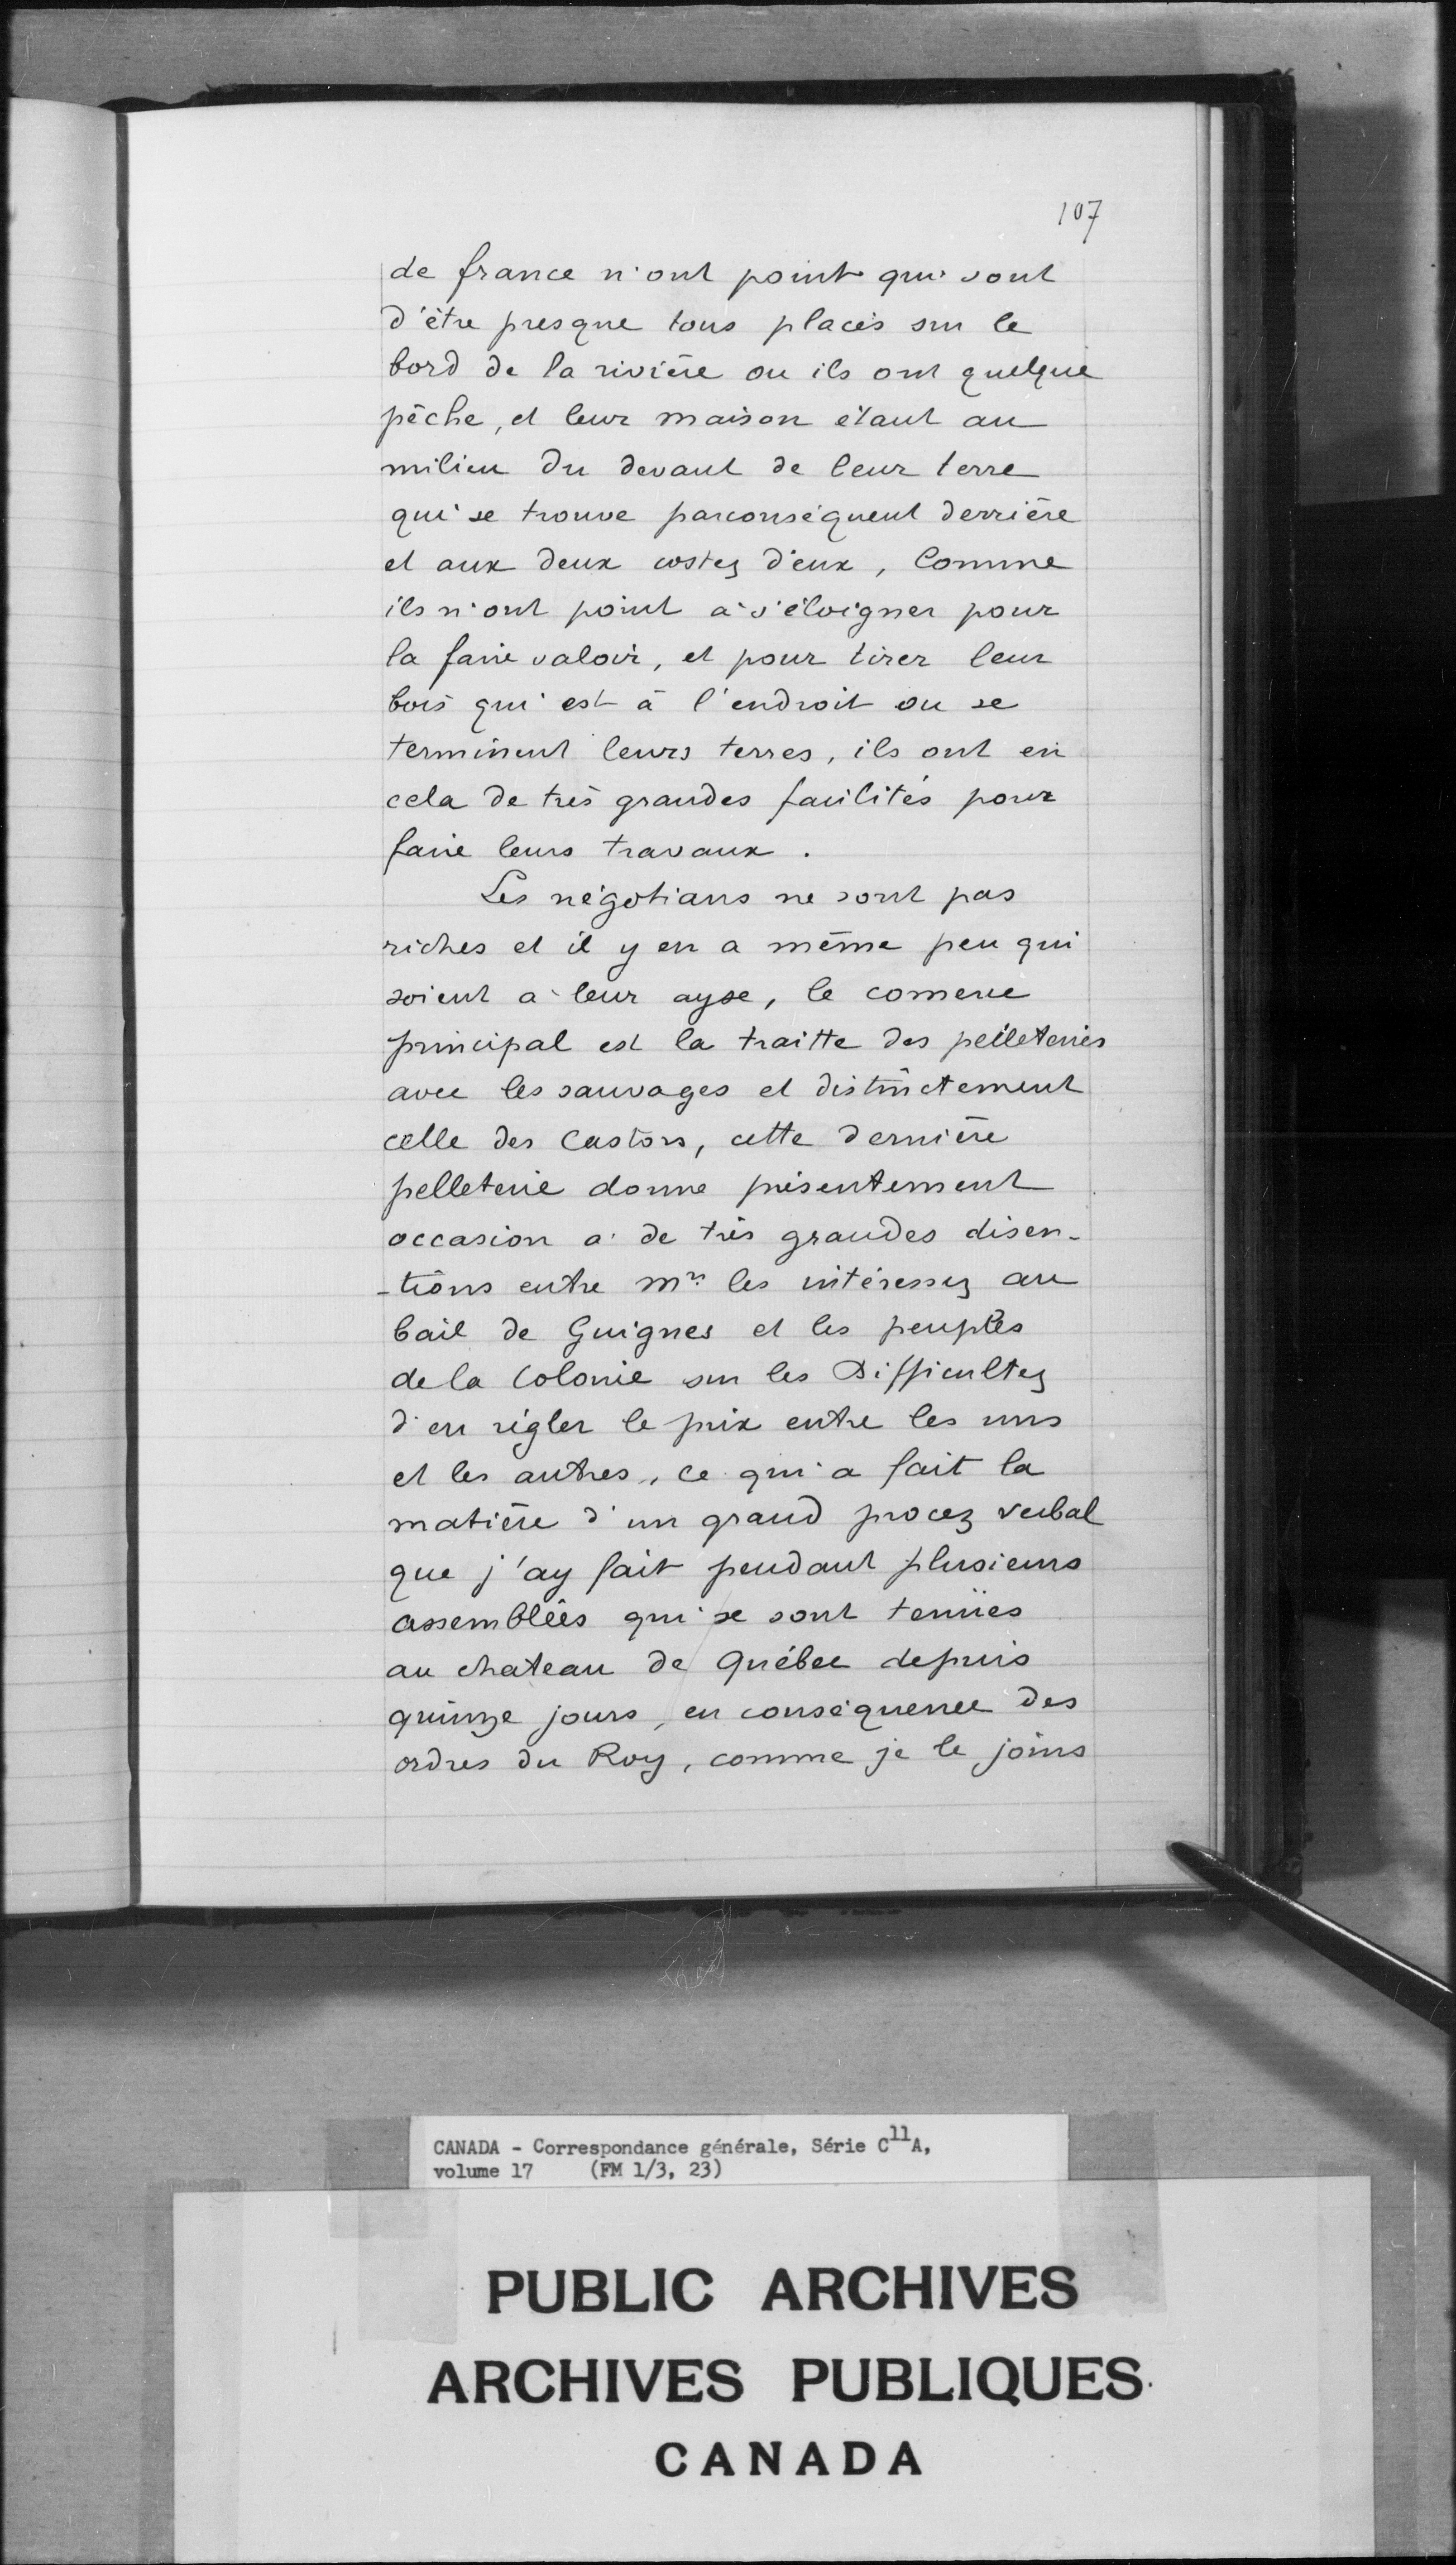 107
de france n'ont point qui sont
d'être presque tous placés sur le
bord de la rivière ou ils ont quelque
pêche, et leur maison étant au
milieu du devant de leur terre
qui se trouve parconséquent derrière
et aux deux costez d'eux, Comme
ils n'ont point à s'éloigner pour
la faire valoir, et pour tirer leur
bois qui est à l'endroit ou se
terminent leurs terres, ils ont en
cela de très grandes facilités pour
faire leurs travaux.
Les négotians ne sont pas
riches et il y en a même peu qui
soient à leur ayse, le comerce
principal est la traitte des pelleteries
avec les sauvages et distinctement
celle des Castors, cette dernière
pelleterie donne présentement
occasion à de très grandes disen-
-tions entre Mrs les intéressez au
bail de Guignes et les peuples
de la Colonie sur les Difficultez
d'en régler le prix entre les uns
et les autres, ce qui a fait la
matière d'un grand procez verbal
que j'ay fait pendant plusieurs
assemblées qui se sont tenües
au chateau de Québec depuis
quinze jours, en conséquence des
ordres du Roy, comme je le joins
CANADA - Correspondance générale, Série C11A,
volume 17 (FM 1/3, 23)
PUBLIC ARCHIVES
ARCHIVES PUBLIQUES
CANADA